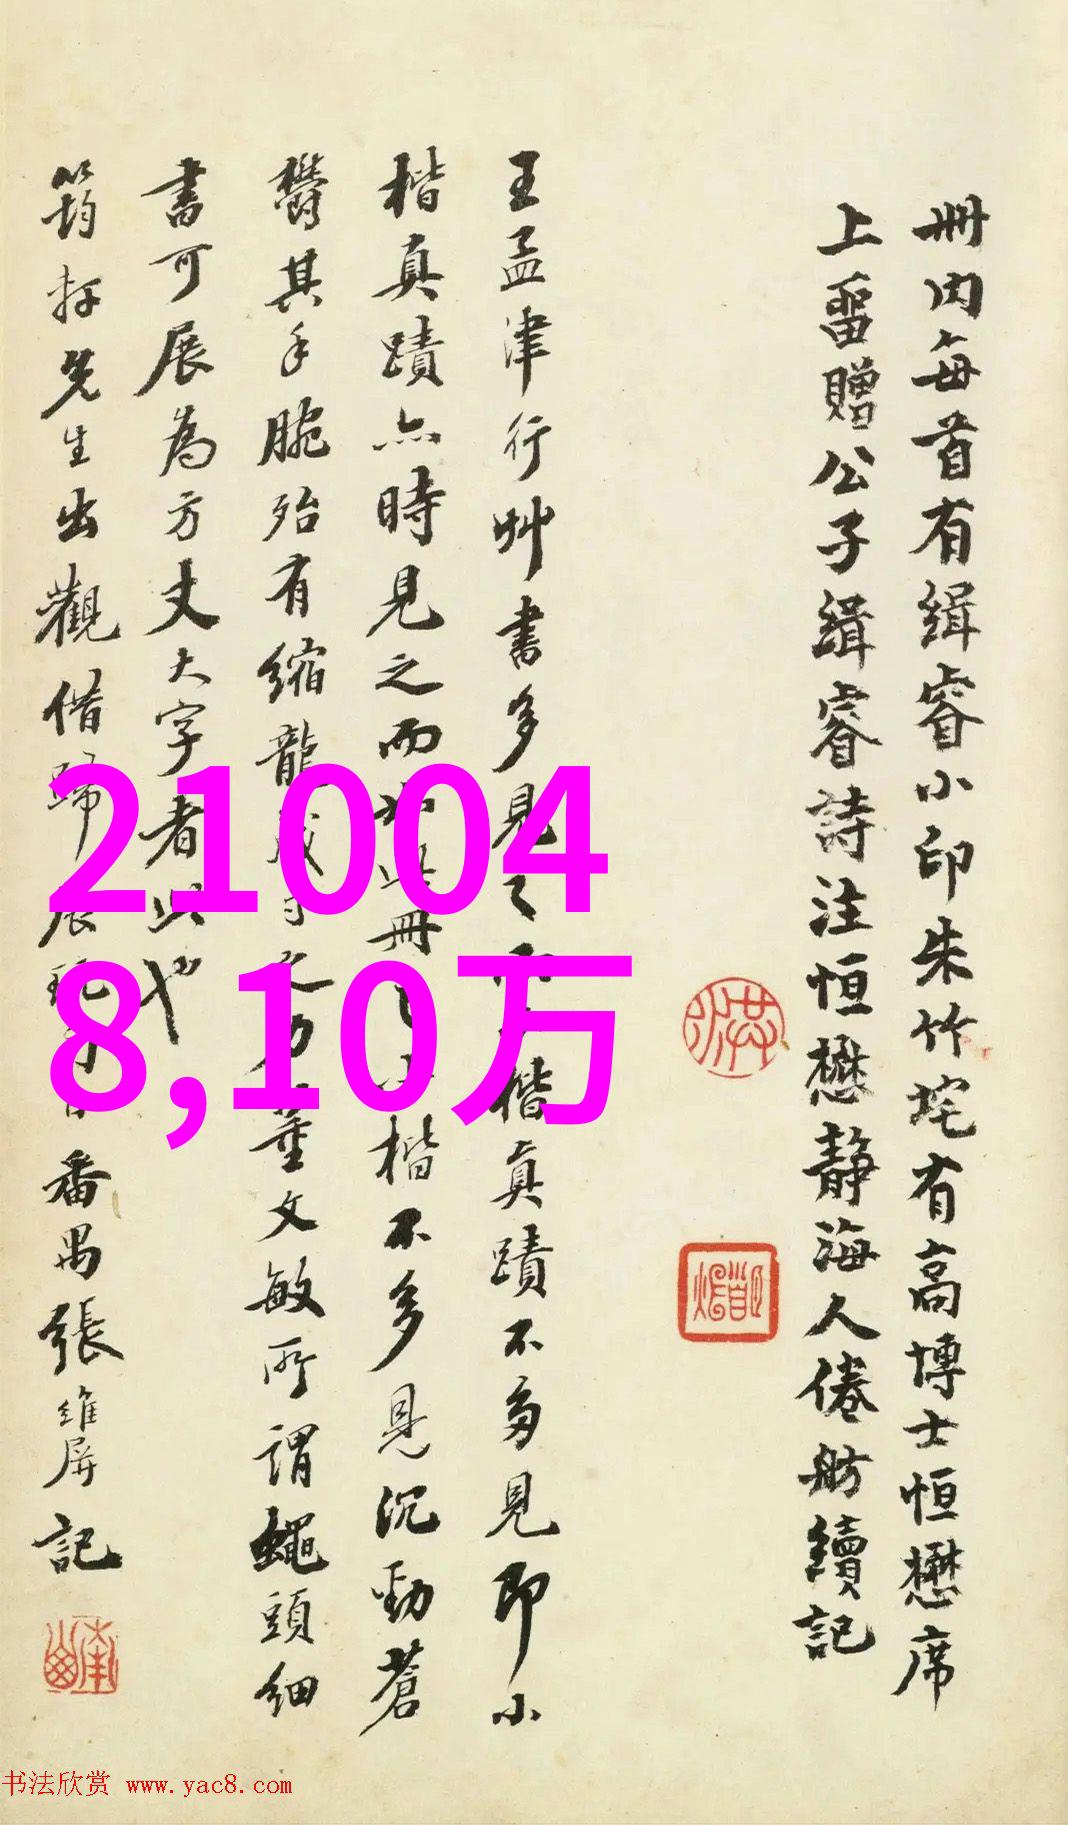 册内每首有緝睿小印朱竹垞有高博士恒懋席
上留贈公子緝睿詩注恒懋靜海人倦舫續記
王孟津行艸書多見之而小楷真蹟不多見即小
楷真蹟亦時見之而如此册之小楷不多見沉勁蒼
鬱其手腕殆有縮龍成寸之力董文敏所謂蠅頭細
書可展為方丈大字者此也
筠打先生出觀借歸展玩 番禺張維屏記
21004
8,10万
书法欣赏 www.yac8.com